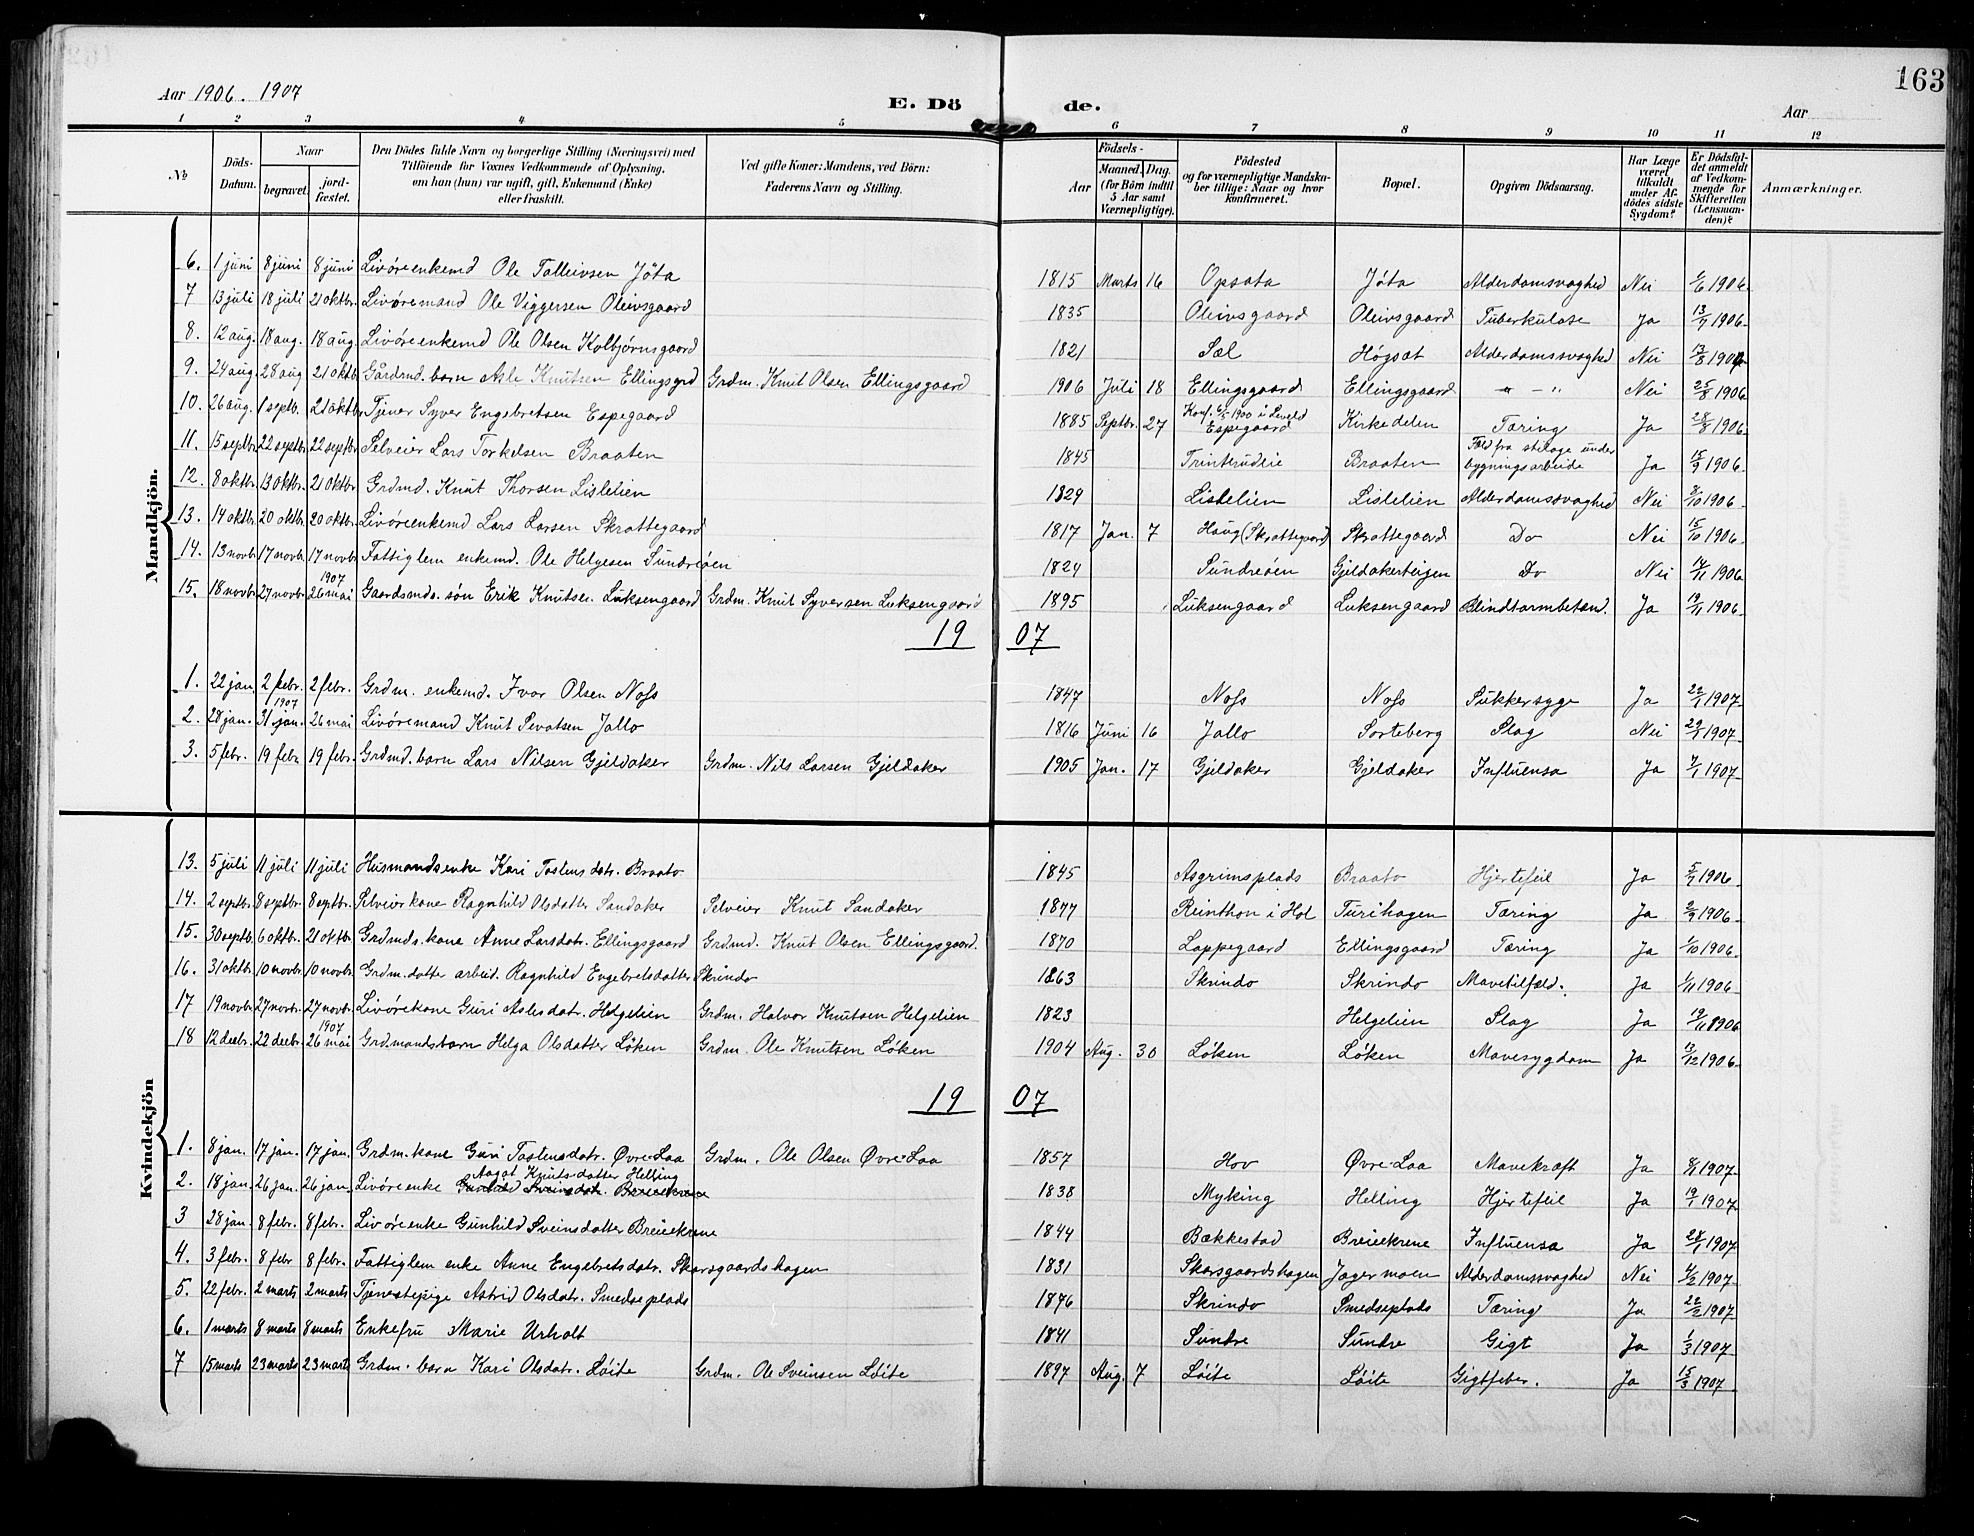 Aar 1906. 1907
E. Döde.
Aar
163
1 2 3 4 5 6 7 8 9 10 11 12
№
Döds-Datum.
Naar
begravet.
jordfæstet.
Den Dödes fulde Navn og borgerlige Stilling (Næringsvei) med Tilföiende for Voxnes Vedkommende af Oplysning, om han (hun) var ugift, gift, Enkemand (Enke) eller fraskilt.
Ved gifte Koner: Mandens, ved Börn: Faderens Navn og Stilling.
Födsels-
Aar
Maaned. Dag. (for Börn indtil 5 Aar samt Værnepligtige).
Födested og for værnepligtige Mandskaber tillige: Naar og hvor konfirmeret.
Bopæl.
Opgiven Dödsaarsag.
Har Læge været tilkaldt under Afdödes sidste Sygdom?
Er Dödsfaldet anmeldt af Vedkommende for Skifteretten (Lensmanden)?
Anmærkninger.
Mandkjön.
6. 1 juni 8 juni 8 juni Livøreenkemd Ole Tolleivsen Jöta 1815 Marts 16 Opsata Jóta Alderdomsvaghed Nei 2/6 1906
7 13 juli 18 juli 21 oktbr. Livøremand Ole Viggersen Oleivsgaard 1835 Oleivsgaard Oleivsgaard Tuberkulose Ja 13/7 1906
8. 12 aug. 18 aug. 18 aug. Livøreenkemd Ole Olsen Kolbjørnsgaard 1821 Sæl Høgsæt Alderdomssvaghed Nei 13/8 1906
9. 24 aug. 28 aug 21 oktb. Gårdmd. barn Asle Knutsen Ellingsgrd Grdm. Knut Olsen Ellingsgaard 1906 Juli 18 Ellingsgaard Ellingsgaard " - " Nei 25/8 1906
10. 26 aug. 1 septb. 21 oktbr Tjener Syver Engebretsen Espegaard 1885 Septbr. 27 Konf. 6/5 1900 i Leveld Espegaard Kirkedelen Tæring Ja 28/8 1906
11. 15 septbr. 22 septbr 22 septbr Selveier Lars Torkelsen Braaten 1845 Trinterudlie Braaten Fald fra stilage under bygningsarbeide Ja 15/9 1906
12. 8 oktbr. 13 oktbr. 21 oktbr. Grdmd. Knut Thorsen Lislelien 1829 Lislelien Lislelien Alderdomssvaghed Nei 8/10 1906
13. 14 oktbr. 20 oktbr 20 oktbr. Livøreenkemd Lars Larsen Skrattegaard 1817 Jan. 7 Haug (Skrattegaard) Skrattegaard Do Nei 15/10 1906
14. 13 novbr. 17 novbr. 17 novbr. Fattiglem enkemd. Ole Helgesen Sundreøen 1829 Sundreøen Gjeldakerteigen Do Nei 14/11 1906
15. 18 novbr. 27 novbr. 1907 26 mai Gaardsmds. søn Erik Knutsen Luksengaard Grdm. Knut Syversen Luksengaard 1895 Luksengaard Luksengaard Blindtarmbetænd. Ja 19/11 1906
1907
1. 22 jan. 2 febr. 2 febr. Grdm. enkemd. Ivar Olsen Noss 1847 Noss Noss Sukkersyge Ja 22/1 1907
2. 28 jan. 1907 31 jan. 26 mai Livøremand Knut Sevatsen Jallo 1816 Juni 16 Jallo Sorteberg Slag Nei 29/1 1907
3. 5 febr. 19 febr. 19 febr. Grdmd. barn Lars Nilsen Gjeldaker Grdm. Nils Larsen Gjeldaker 1905 Jan. 17 Gjeldaker Gjeldaker Influensa Ja 7/1 1907
Kvindekjön
13. 5 juli 11 juli 11 juli Husmandsenke Kari Tostensdatr. Braato 1845 Asgrimsplads Braato Hjertefeil Ja 5/7 1906
14. 2 septbr. 8 septbr. 8 septbr. Selveierkone Ragnhild Olsdatter Sandaker Selveier Knut Sandaker 1877 Reinthon i Hol Turihagen Tæring Ja 2/9 1906
15. 30 septb. 6 oktbr. 21 oktbr. Grdmds. kone Anne Larsdatr. Ellingsgaard Grdmd. Knut Olsen Ellingsgaard. 1870 Lappegaard Ellingsgaard Tæring Ja 1/10 1906
16. 31 oktbr. 10 novbr. 10 novbr. Grdm. datter arbeid. Ragnhild Engebretsdatter Skrindo 1863 Skrindo Skrindo Mavetilfæld. Ja 1/11 1906
17 19 novbr. 27 novbr. 27 novbr. Livörekone Guri Aslesdatr. Helgelien Grdm. Halvor Knutsen Helgelien 1823 Helgelien Slag Ja 19/11 1906
18 12 decbr. 22 decbr. 1907 26 mai Grdmandsbarn Helga Olsdatter Löken Grdm. Ole Knutsen Löken 1904 Aug. 30 Löken Löken Mavesygdom Ja 13/12 1906
1907
1. 8 jan. 17 jan. 17 jan. Grdm. kone Guri Tostensdatr. Øvre-Laa Grdm. Ole Olsen Øvre-Laa 1857 Hov Øvre-Laa Mavekræft Ja 8/1 1907
2. 18 jan. 26 jan. 26 jan. Livöreenke Aagot Knutsdatter Helling Gunhild Sveinsdatr. Breiekrene 1838 Myking Helling Hjertefeil Ja 19/1 1907
3 28 jan. 8 febr. 8 febr. Livöreenke Gunhild Sveinsdatter Breiekrene 1844 Bækkestad Breiekrene Influensa Ja 28/1 1907
4. 3 febr. 8 febr 8 febr. Fattiglem enke Anne Engebretsdatr. Skarsgaardshagen 1831 Skarsgaardshagen Jagermoen Alderdomssvaghed Nei 4/2 1907
5. 22 febr. 2 marts 2 marts Tjenestepige Astrid Olsdatr. Smedseplads 1876 Skrindo Smedseplads Tæring Ja 22/2 1907
6. 1 marts 8 marts 8 marts Enkefru Marie Urholt 1841 Sundre Sundre Gigt Ja 1/3 1907
7 15 marts 23 marts 23 marts Grdm. barn Kari Olsdatr. Löite Grdm. Ole Sveinsen Löite 1897 Aug. 7 Löite Löite Gigtfeber. Ja 15/3 1907